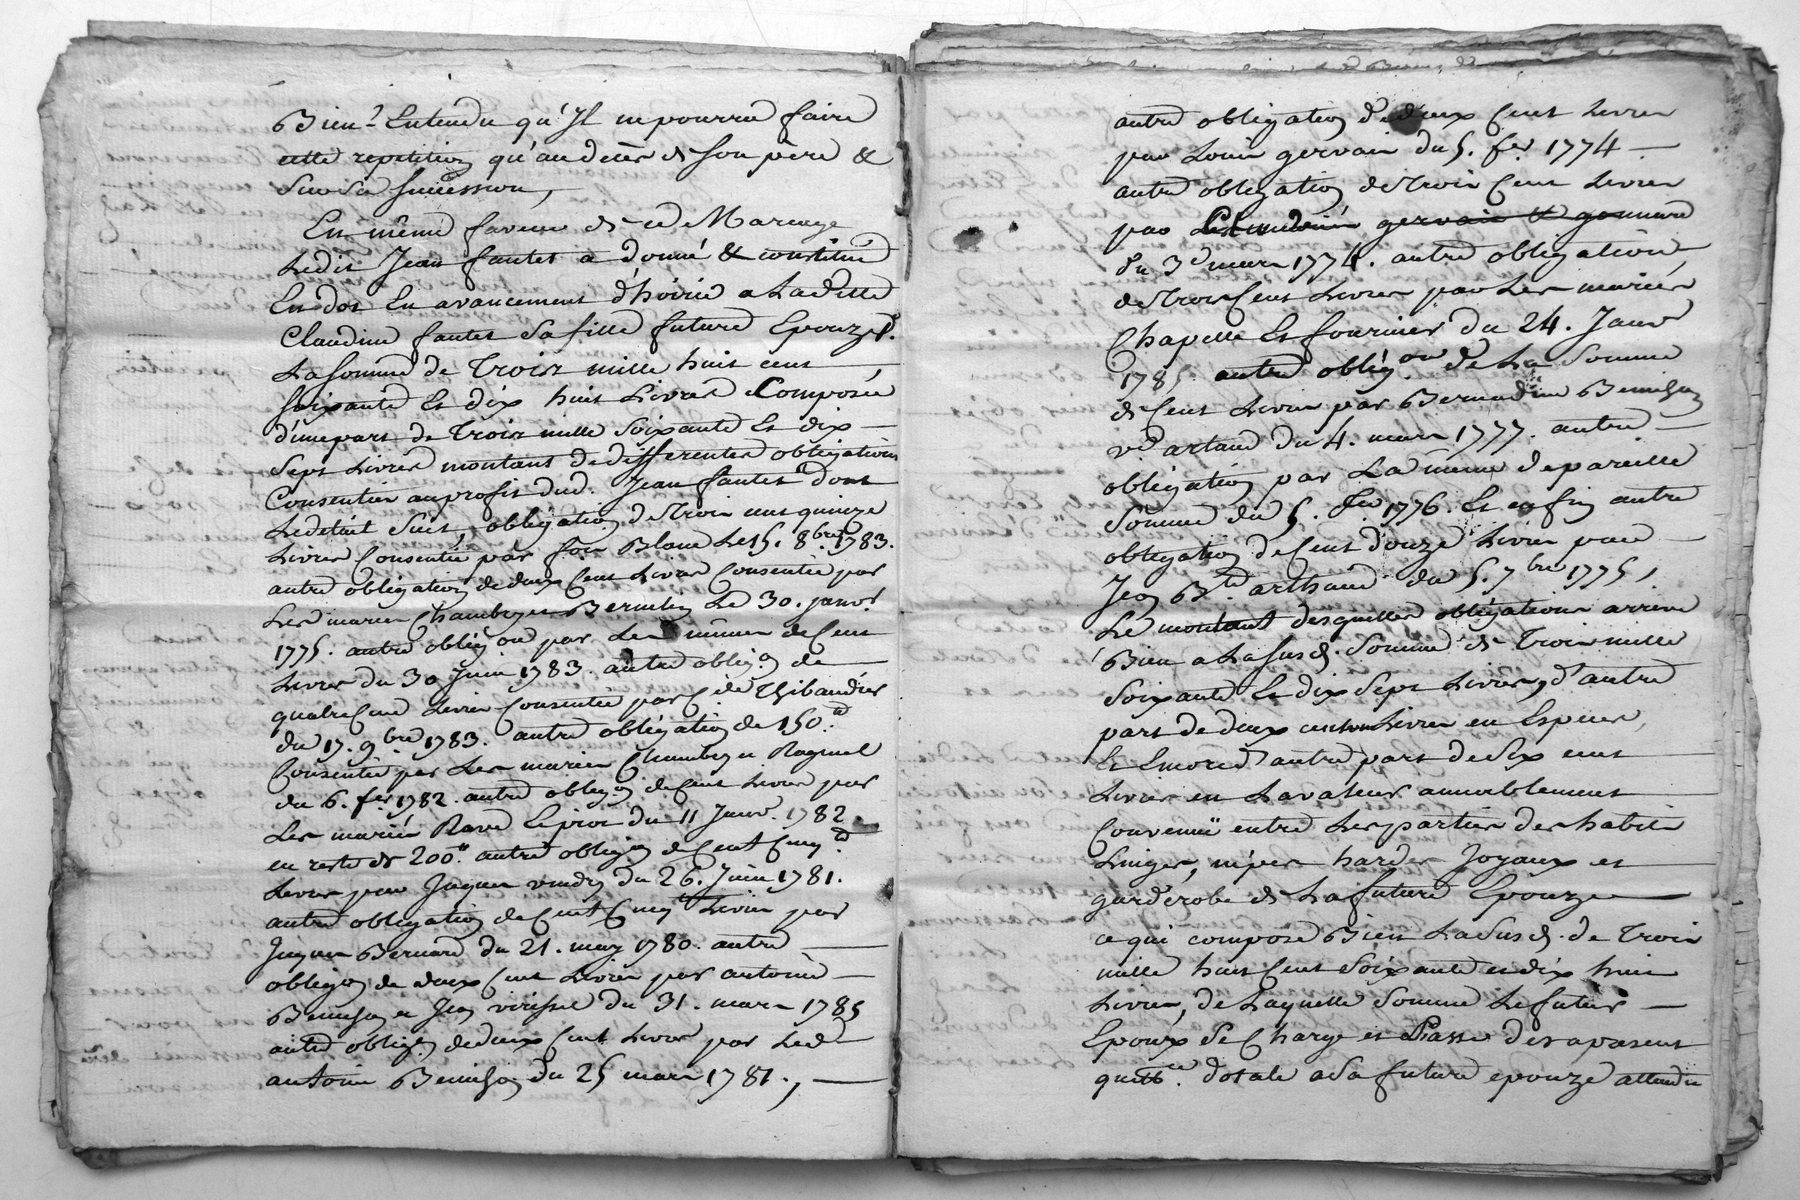 Bien Entendu qu'Il ne pourra faire
cette repetition qu'au deces de son père &
sur sa succession,
En même faveur de ce Mariage
Ledit Jean fautet a donné & constitué
En dot En avancement d'hoirie a Laditte
Claudine fautet sa fille future Epouze
La somme de Trois mille huit cent
soixante Et dix huit Livres Composée
d'une part de Trois mille soixante Et dix
sept Livres montant de differentes obligations
Consenties au profit dud. Jean fautet dont
Le detail suit, obligation de trois cent quinze
Livres Consentie par Blanc Le 15. 8bre 1783.
autre obligation de deux Cent Livres Consentie par
Les mariés Le 30. janvr.
1775. autre oblig.on par Les mêmes de Cent
Livres du 30 Juin 1783. autre oblig.on de
quatre Cent Livres Consentie par Thibaudier
du 17. 9bre 1783. autre obligation de 150.
Consentie par Les mariés
du 6. fer 1782. autre oblig.on de Cent Livres par
Les mariés du 11 Janvr. 1782
en reste de 200.tt autre oblig.on de Cent Cinq.
Livres par Jaques du 26. Juin 1781.
autre obligation de Cent Cinq.te Livres par
Jaques Bernard du 21. may 1780. autre
oblig.on de deux Cent Livres par antoine
du 31. mars 1785
autre oblig.on de deux Cent Livres par Led.
antoine du 25 mars 1781.,
autre obligation de deux Cent Livres
par Louis gervais du 5. fer 1774
autre obligation de trois Cent Livres
par gervais &
du 3e mars 1774. autre obligation
de trois Cent Livres par Les mariés
Chapelle Et fournier du 24. Janvr
1785. autre oblig.on de La somme
de Cent Livres par Bernardine
ve artaud du 4. mars 1777. autre
obligation par La même de pareille
somme du 5. 1776. Et enfin autre
obligation de Cent douze Livres par
Jean Bte arthaud du 5. 7bre 1775,
Le montant desquelles obligations arrive
Bien a La susd. somme de Trois mille
soixante Et dix sept Livres, d'autre
part de deux cent Livres en Especes,
Et Encore d'autre part de six cent
Livres en La valeur amiablement
Convenuë entre Les parties des habits
Linges, nipes hardes Joyaux et
garderobe de La future Epouze
ce qui compose Bien La susd. de Trois
mille huit Cent soixante et dix huit
Livres, de Laquelle somme Le futur
Epoux se Charge et Passe des a present
quitt.ce dotale a sa future epouze attendu